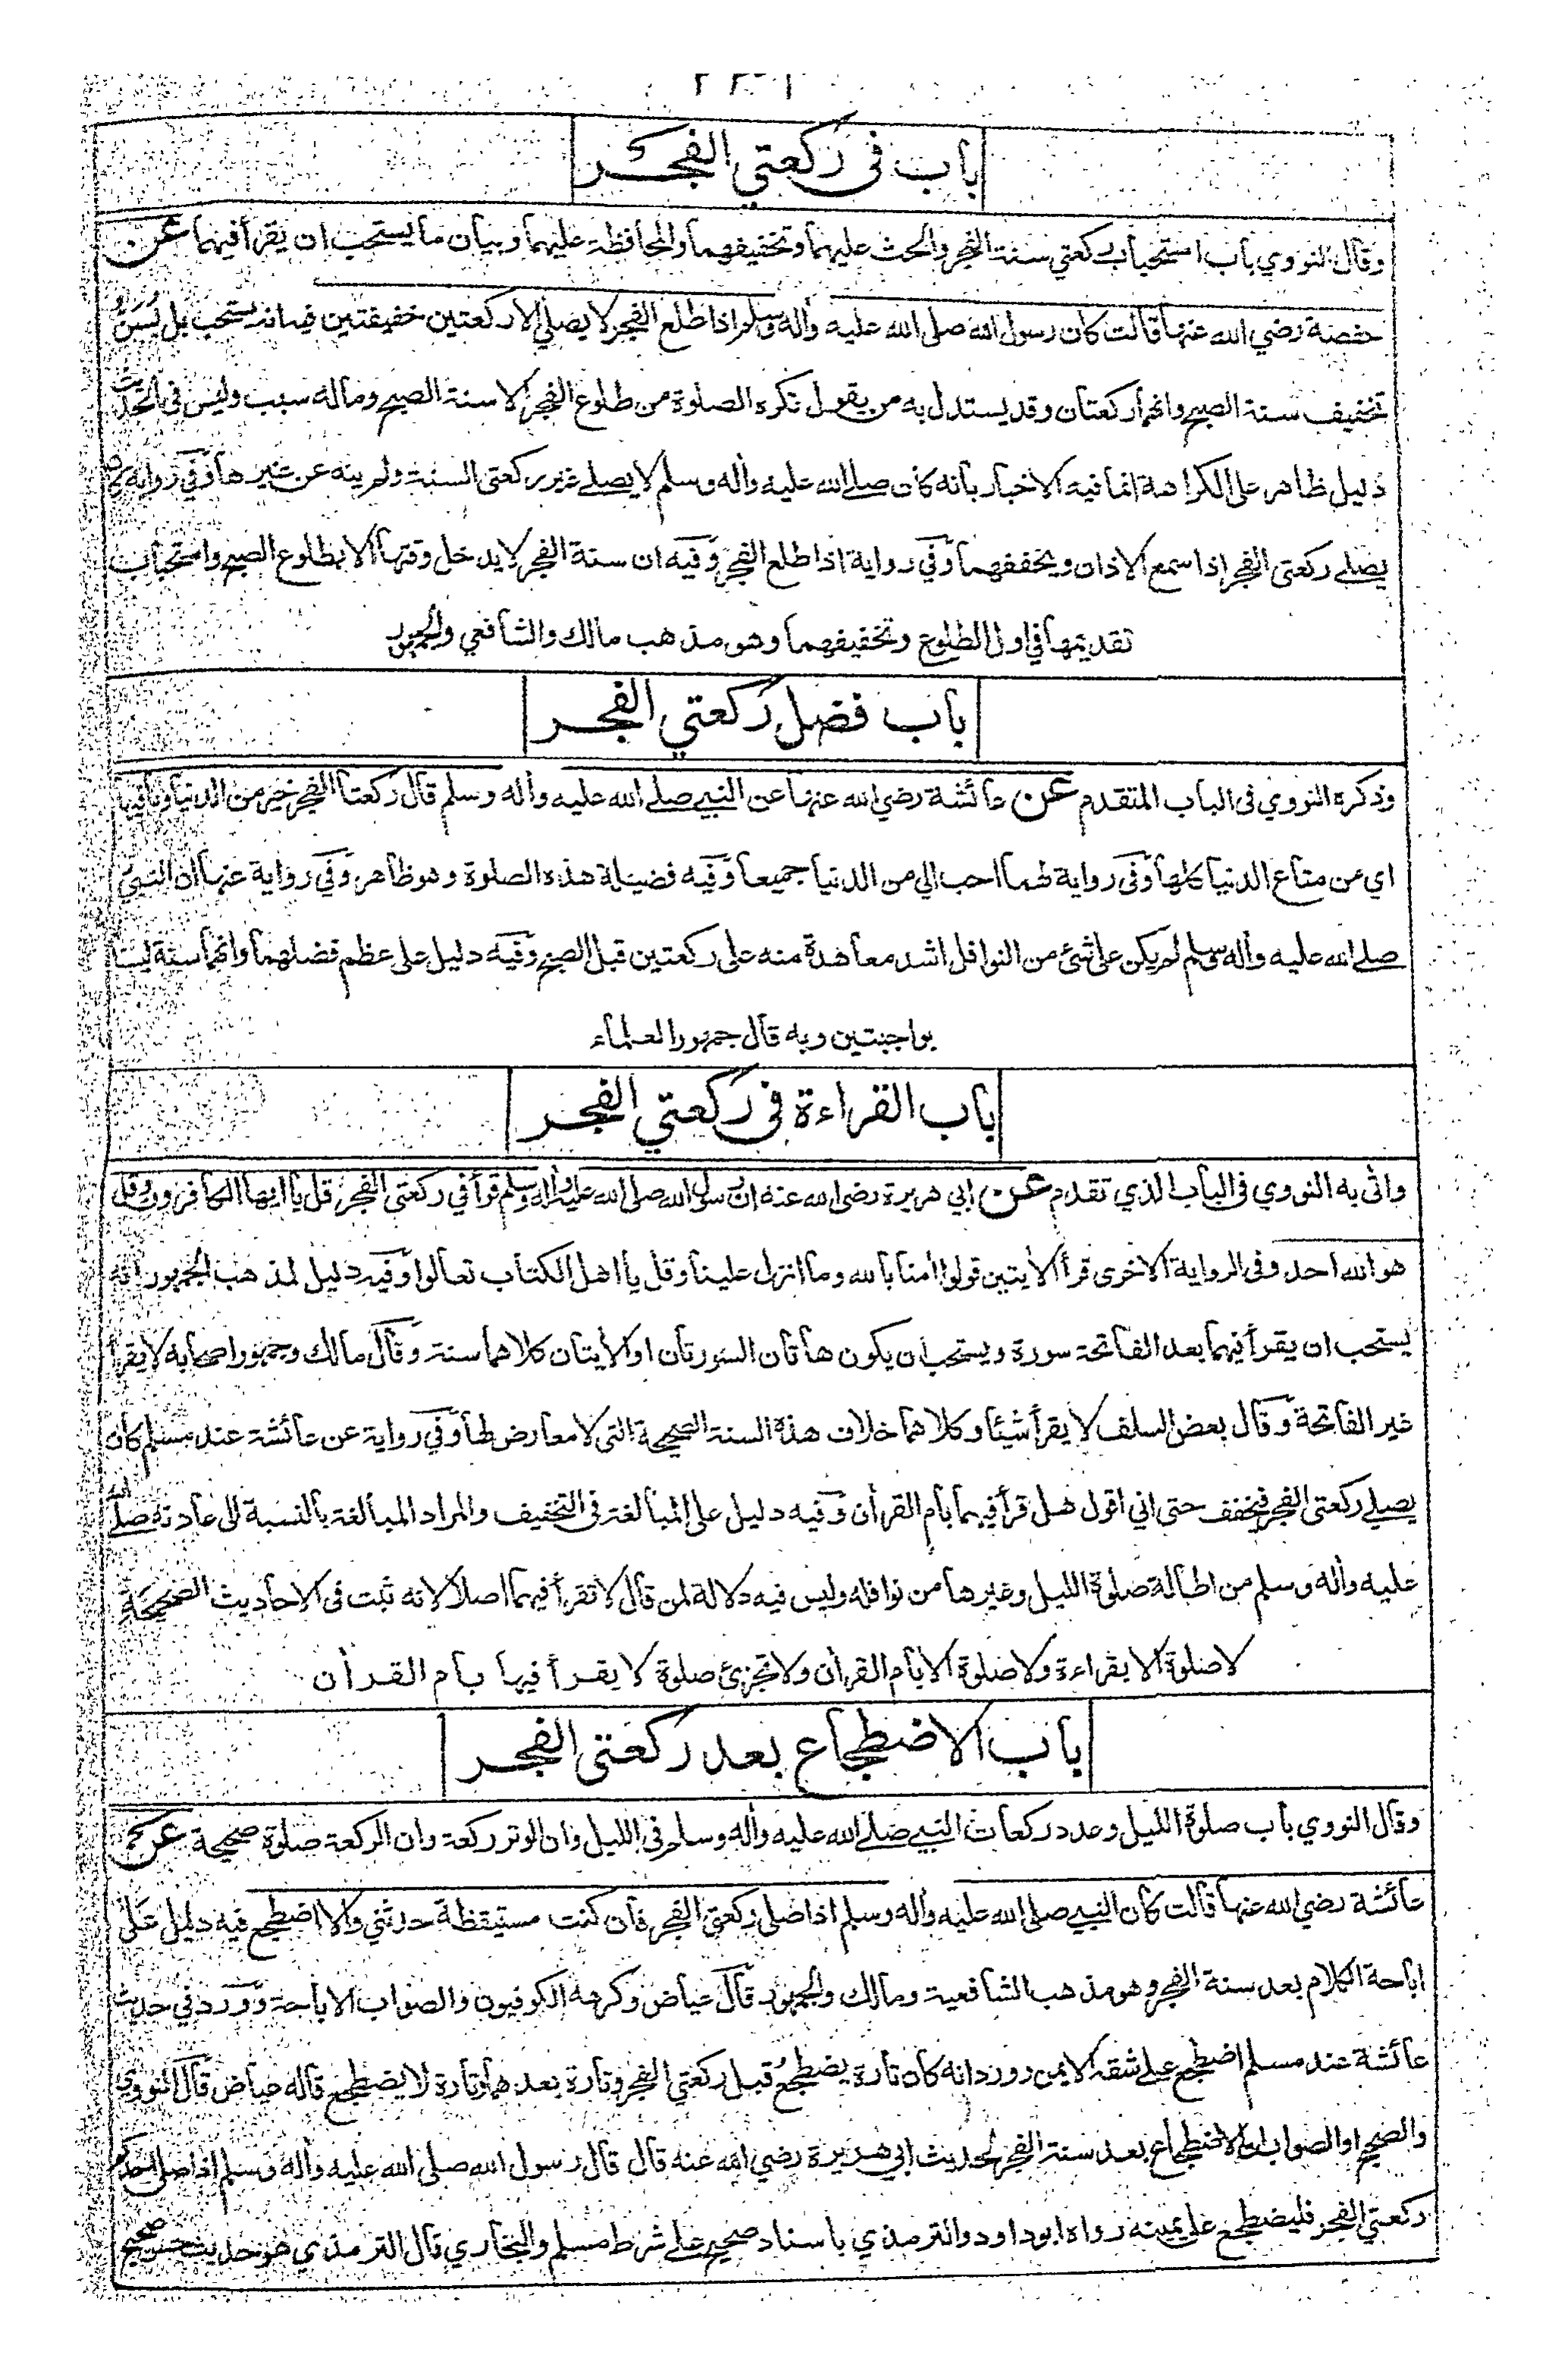 باب في ركعتي الفجر
وقال النووي باب استحباب ركعتي سنة الفجر والحث عليهما وتخفيفهما والمحافظة عليهما وبيان ما يستحب ان يقرأ فيهما عن
حفصة رضي الله عنها قالت كان رسول الله صلى الله عليه وأله وسلم اذا طلع الفجر لا يصلي الا ركعتين خفيفتين فيه انه يستحب بل يُسَنُّ
تخفيف سنة الصبح وانهما ركعتان وقد يستدل به من يقول تكره الصلوة من طلوع الفجر الا سنة الصبح وماله سبب وليس في الحديث
دليل ظاهر على الكراهة انما فيه الاخبار بأنه كان صلى الله عليه وأله وسلم لا يصلي غير ركعتي السنة ولم ينه عن غيرها وفي رواية كان
يصلي ركعتي الفجر اذا سمع الاذان ويخففهما وفي رواية اذا طلع الفجر وفيه ان سنة الفجر لا يدخل وقتها الا بطلوع الصبح واستحباب
تقديمها في اول الطلوع وتخفيفهما وهو مذهب مالك والشافعي والجمهور
باب فضل ركعتي الفجر
وذكره النووي في الباب المتقدم عن عائشة رضي الله عنها عن النبي صلى الله عليه وأله وسلم قال ركعتا الفجر خير من الدنيا وما فيها
اي من متاع الدنيا كلها وفي رواية لهما احب الي من الدنيا جميعا وفيه فضيلة هذه الصلوة وهو ظاهر وفي رواية عنها ان النبي
صلى الله عليه وأله وسلم لم يكن على شئ من النوافل اشد معاهدة منه على ركعتين قبل الصبح وفيه دليل على عظم فضلهما وانهما سنة ليستا
بواجبتين وبه قال جمهور العلماء
باب القراءة في ركعتي الفجر
واتى به النووي في الباب الذي تقدم عن ابي هريرة رضى الله عنه ان رسول الله صلى الله عليه وأله وسلم قرأ في ركعتي الفجر قل يا ايها الكافرون وقل
هو الله احد وفي الرواية الاخرى قرأ الأيتين قولوا أمنا بالله وما انزل علينا وقل يا اهل الكتاب تعالوا وفيه دليل لمذهب الجمهور انه
يستحب ان يقرأ فيهما بعد الفاتحة سورة ويستحب ان يكون هاتان السورتان او الأيتان كلاهما سنة وقال مالك وجمهور اصحابه لا يقرأ
غير الفاتحة وقال بعض السلف لا يقرأ شيئا وكلاهما خلاف هذه السنة الصحيحة التي لا معارض لها وفي رواية عن عائشة عند مسلم كان
يصلي ركعتي الفجر فيخفف حتى اني اقول هل قرأ فيهما بأم القرأن وفيه دليل على المبالغة في التخفيف والمراد المبالغة بالنسبة الى عادته صلى الله
عليه وأله وسلم من اطالة صلوة الليل وغيرها من نوافله وليس فيه دلالة لمن قال لا تقرأ فيهما اصلا لانه ثبت في الاحاديث الصحيحة
لا صلوة الا بقراءة ولا صلوة الا بأم القرأن ولا تجزئ صلوة لا يقرأ فيها بأم القرأن
باب الاضطجاع بعد ركعتي الفجر
وقال النووي باب صلوة الليل وعدد ركعات النبي صلى الله عليه وأله وسلم في الليل وان الوتر ركعة وان الركعة صلوة صحيحة عن
عائشة رضي الله عنها قالت كان النبي صلى الله عليه وأله وسلم اذا صلى ركعتي الفجر فان كنت مستيقظة حدثني والا اضطجع فيه دليل على
اباحة الكلام بعد سنة الفجر وهو مذهب الشافعية ومالك والجمهور قال عياض وكرهه الكوفيون والصواب الاباحة وورد في حديث
عائشة عند مسلم اضطجع على شقه الايمن وورد انه كان تارة يضطجع قبل ركعتي الفجر وتارة بعدهما وتارة لا يضطجع قاله عياض قال النووي
والصحيح او الصواب الاضطجاع بعد سنة الفجر لحديث ابي هريرة رضي الله عنه قال قال رسول الله صلى الله عليه وأله وسلم اذا صلى احدكم
ركعتي الفجر فليضطجع على يمينه رواه ابو داود والترمذي باسناد صحيح على شرط مسلم والبخاري قال الترمذي هو حديث حسن صحيح